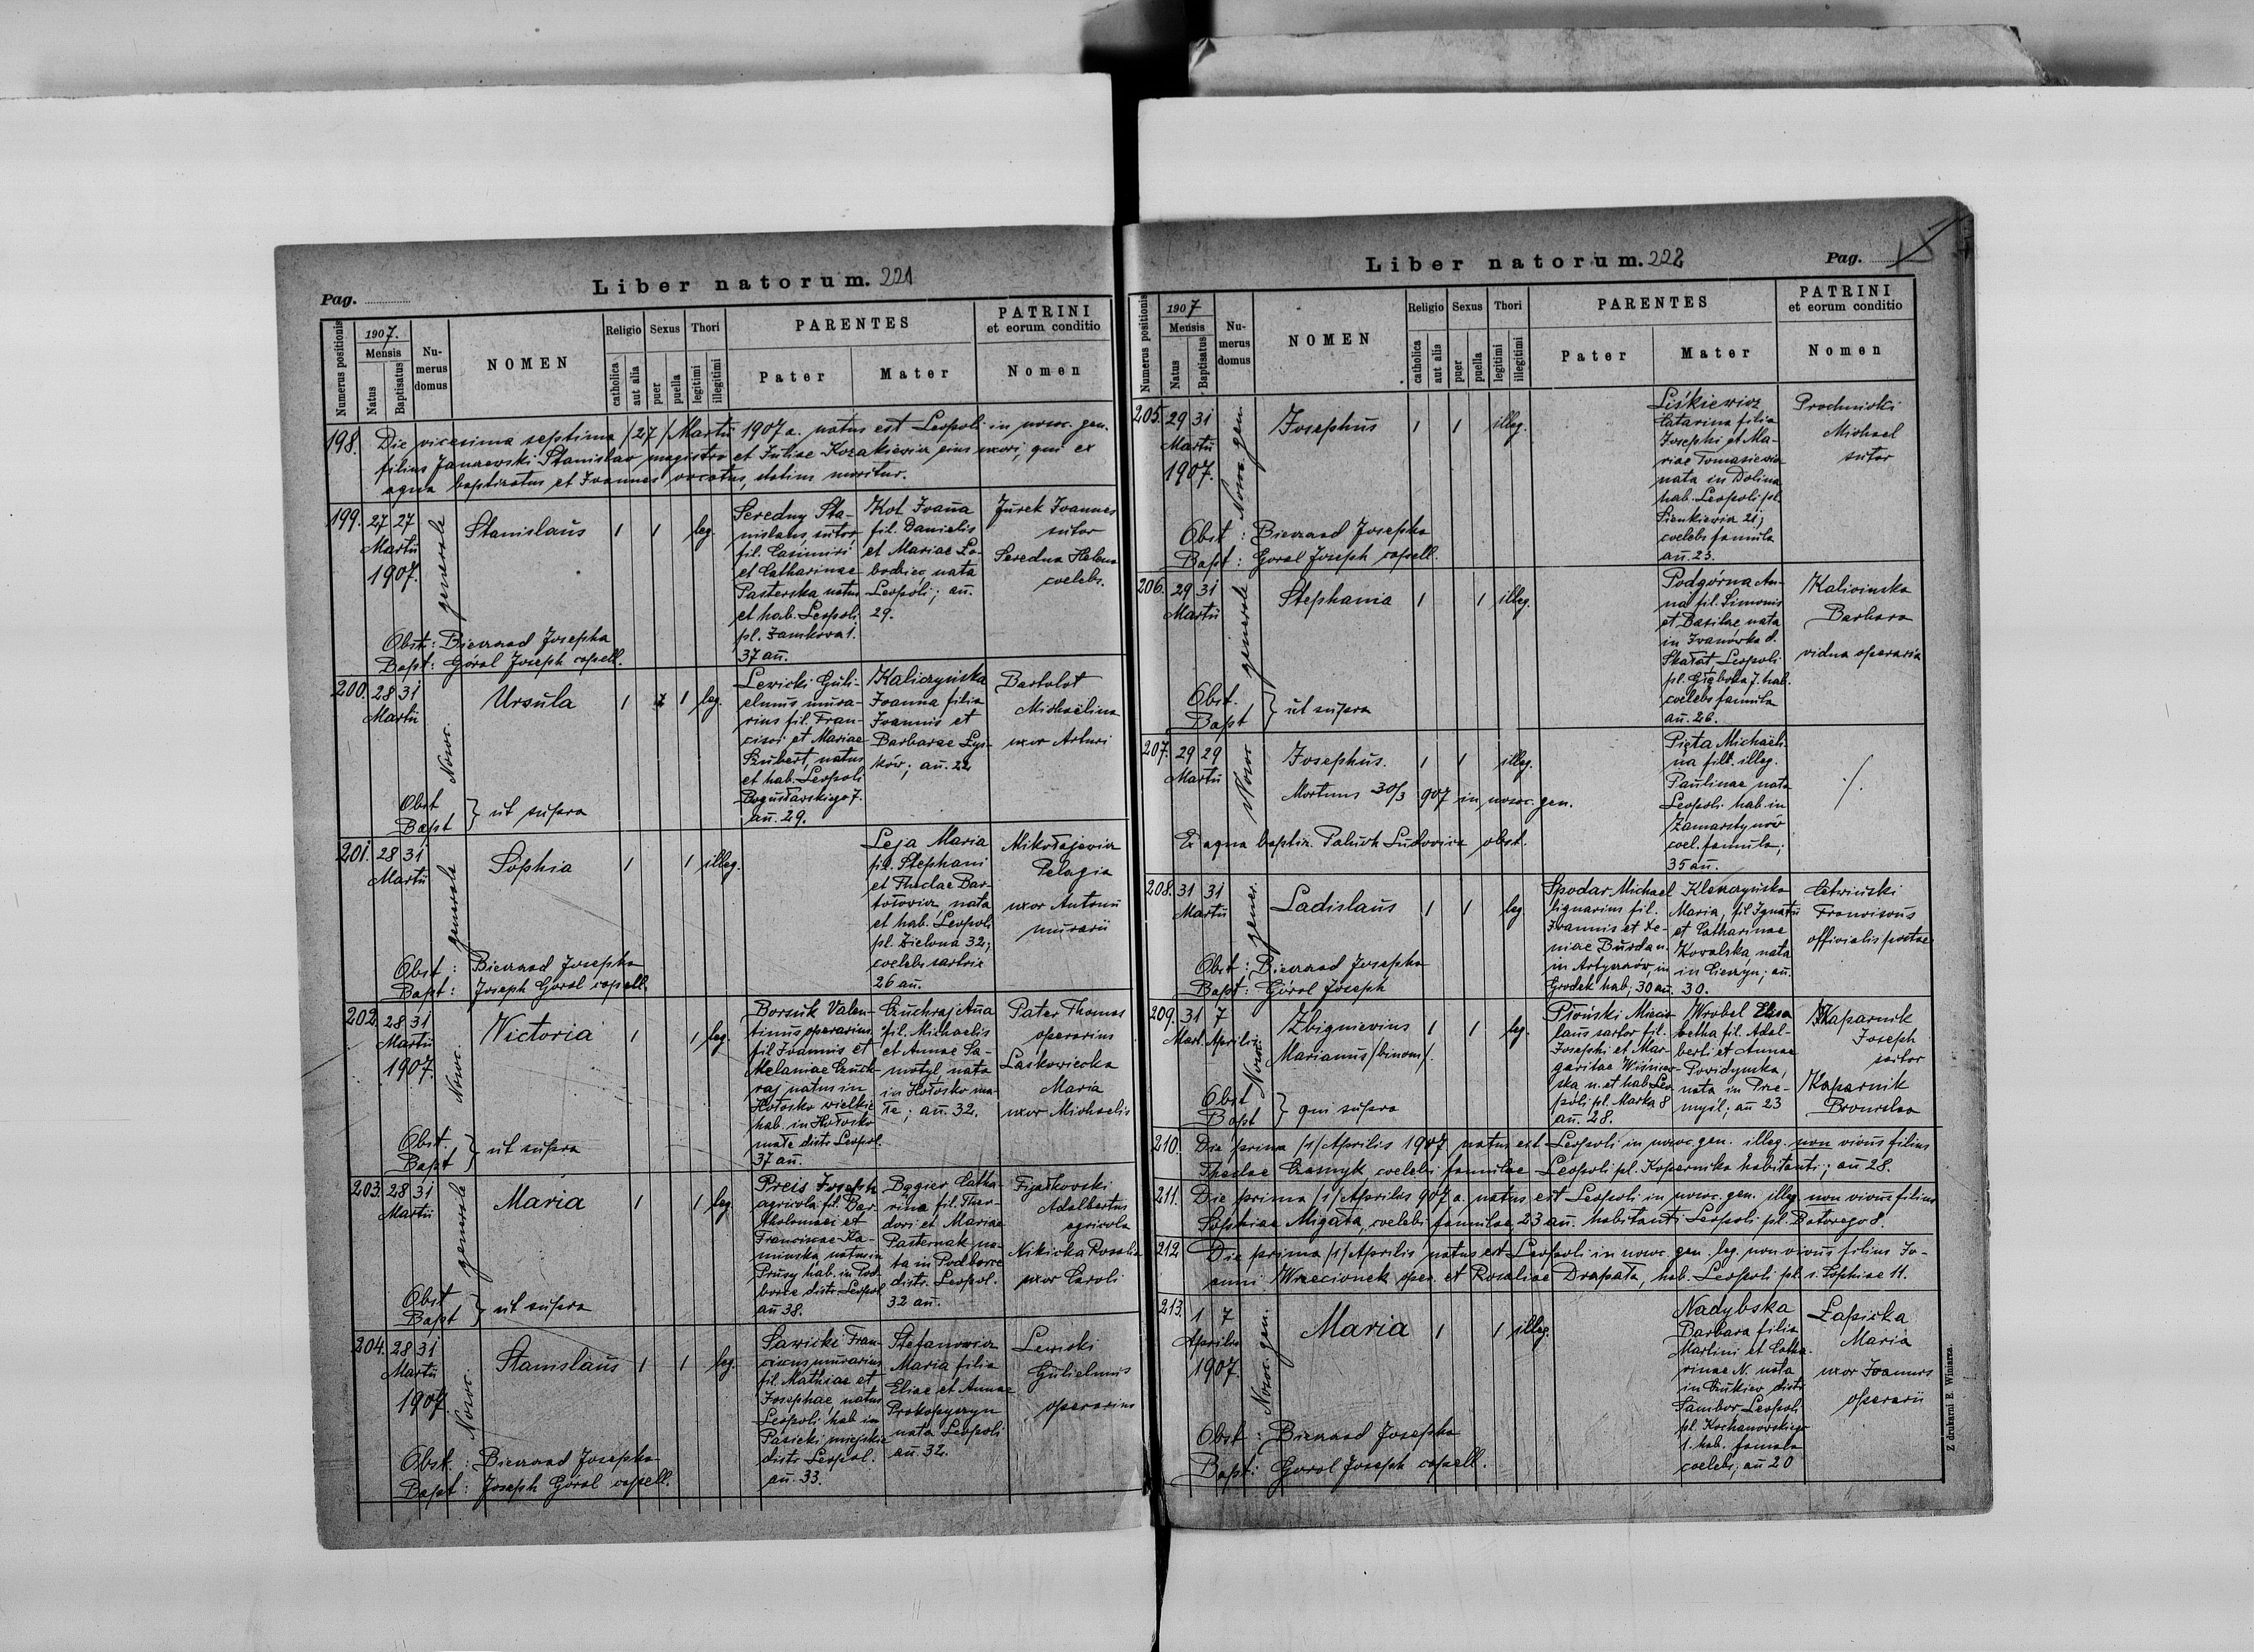 Liber natorum. 221
Pag.
Numerus positionis
1907.
Mensis
Natus
Baptisatus
Nu-
merus
domus
NOMEN
Religio
catholica
aut alia
Sexus
puer
puella
Thori
legitimi
illegitimi
PARENTES
Pater
Mater
PATRINI
et eorum conditio
Nomen
198. Die vicesima septima /27/ Martii 1907 a. natus est Leopoli in nosoc. gen.
filius Janzewski Stanislao magistro et Juliae Kozakiewicz eius uxori, qui ex
aqua baptizatus et Joannes vocatus, statim moritur.
199. 27 27
Martii
1907.
generale
Stanislaus
1 1 leg.
Seredny Sta-
nislaus, sutor,
fil. Casimiri
et Catharinae
Pasterska natus
et hab. Leopoli
pl. Zamkova 1.
37 an.
Kot Joanna
fil. Danielis
et Mariae Lo-
bodziec nata
Leopoli; an.
29.
Jurek Joannes
sutor
Seredna Helena
coelebs.
Obst: Bieczad Josepha
Bapt: Góral Joseph capell.
200. 28 31
Martii
Nosoc.
Ursula
1 1 leg.
Lewicki Guli-
elmus mura-
rius fil. Fran-
cisci et Mariae
Szubert, natus
et hab. Leopoli
Bogusławskiego 7.
an. 29.
Kaliczyńska
Joanna filia
Joannis et
Barbarae Łys-
ków; an. 22
Bartolot
Michaëlina
uxor Arturi
Obst
Bapt } ut supra
201. 28 31
Martii
generale
Sophia
1 1 illeg.
Leja Maria
fil. Stephani
et Theclae Bar-
tołowicz nata
et hab. Leopoli
pl. Zielona 32;
coelebs sartrix
26 an.
Mikołajewicz
Pelagia
uxor Antonii
murarii
Obst : Bieczad Josepha
Bapt : Joseph Góral capell.
202. 28 31
Martii
1907.
Nosoc.
Victoria
1 1 leg.
Borsuk Valen-
tinus operarius
fil. Joannis et
Melaniae Czuch-
raj natus in
Hołosko wielkie
hab. in Hołosko
małe distr. Leopol.
37 an.
Czuchraj Anna
fil. Michaelis
et Annae Sa-
motyl nata
in Hołosko ma-
łe; an. 32.
Pater Thomas
operarius
Laskowiecka
Maria
uxor Michaelis
Obst.
Bapt } ut supra
203. 28 31
Martii
generale
Maria
1 1 leg.
Preis Joseph
agricola fil. Bar-
tholomaei et
Franciscae Ka-
minska, natus in
Prusy hab. in Pod-
borce distr. Leopol
an 38.
Begier Catha-
rina, fil. Theo-
dori et Mariae
Pasternak na-
ta in Podborce
distr. Leopol.
32 an.
Fijałkowski
Adalbertus
agricola
Nikicka Rosalia
uxor Caroli
Obst
Bapt } ut supra
204. 28 31
Martii
1907.
Nosoc.
Stanislaus
1 1 leg.
Sawicki Fran-
ciscus murarius
fil. Mathiae et
Josephae natus
Leopoli hab in
Pasieki miejskie
distr. Leopol.
an. 33.
Stefanowicz
Maria filia
Eliae et Annae
Prokopyczyn
nata Leopoli
an. 32.
Lewicki
Gulielmus
operarius
Obst. : Bieczad Josepha
Bapt : Joseph Góral capell.
Liber natorum. 222
Pag.
Numerus positionis
1907
Mensis
Natus
Baptisatus
Nu-
merus
domus
NOMEN
Religio
catholica
aut alia
Sexus
puer
puella
Thori
legitimi
illegitimi
PARENTES
Pater
Mater
PATRINI
et eorum conditio
Nomen
205. 29 31
Martii
1907.
Nosoc. gen.
Josephus
1 1 illeg.
Liśkiewicz
Catarina filia
Josephi et Ma-
riae Tomasiewicz
nata in Dolina
hab. Leopoli pl.
Sienkiewicz 21;
coelebs famula
an. 23.
Prochnicki
Michael
sutor
Obst : Bieczad Josepha
Bapt : Goral Joseph capell.
206. 29 31
Martii
generale
Stephania
1 1 illeg.
Podgórna An-
na fil. Simonis
et Basilae nata
in Ivanówka d.
Skałat, Leopoli
pl. Głęboka 7. hab.
coelebs famula
an. 26.
Kaliwinska
Barbara
vidua operaria
Obst.
Bapt } ut supra
207. 29 29
Martii
Nosoc
Josephus.
1 1 illeg.
Pięta Michaëli-
na fil. illeg.
Paulinae nata
Leopoli hab. in
Zamarstynów
coel. famula;
35 an.
./.
Mortuus 30/3 907 in nosoc. gen.
Ex aqua baptiz. Paluch Ludovica obst.
208. 31 31
Martii
gener.
Ladislaus
1 1 leg
Spodar Michael
lignarius fil.
Joannis et Xe-
niae Burda n.
in Artyszczów, in
Grodek hab; 30 an.
Klenczyńska
Maria, fil Ignatii
et Catharinae
Kowalska, nata
in Cieszyn; an.
30.
Cetwiński
Franciscus
officialis postae
Obst : Bieczad Josepha
Bapt: Góral Joseph
209. 31 7
Mart. Aprilis
Nosoc.
Zbignievius
Marianus /binom/.
1 1 leg.
Płoński Miecis-
laus sartor fil.
Josephi et Mar-
garitae Wiśniew-
ska n. et hab Leo
poli pl. Marka 8
an. 28.
Wrobel Elisa
betha fil. Adal-
berti et Annae
Powidynska,
nata in Prze-
myśl; an 23
Kaparnik
Joseph
sartor
Kaparnik
Bronisloa
Obst
Bapt } qui supra
210. Die prima /1/ Aprilis 1907 natus est Leopoli in nosoc. gen. illeg. non vivus filius
Theclae Czasnyk coelebi famulae Leopoli pl. Kopernika habitanti; an 28.
211. Die prima /1/ Aprilis 907 a. natus est Leopoli in nosoc. gen. illeg non vivus filius
Sophiae Migała, coelebi famulae, 23 an. habitanti Leopoli pl. Batorego 8.
212 Die prima /1/ Aprilis natus est Leopoli in nosoc. gen. leg. non vivus filius Jo-
anni Wrzecionek oper. et Rosaliae Drapała, hab. Leopoli pl. s. Sophiae 11.
213. 1 7
Aprilis
1907.
Nosoc. gen.
Maria
1 1 illeg.
Nadybska
Barbara filia
Martini et Catha-
rinae N. nata
in Czukiew distr
Sambor Leopoli
pl. Kochanowskiego
1. hab. famula
coelebs; an 20
Łapicka
Maria
uxor Joannis
operarii
Obst : Bieczad Josepha
Bapt: Goral Joseph capell.
Z drukarni E. Winiarza.